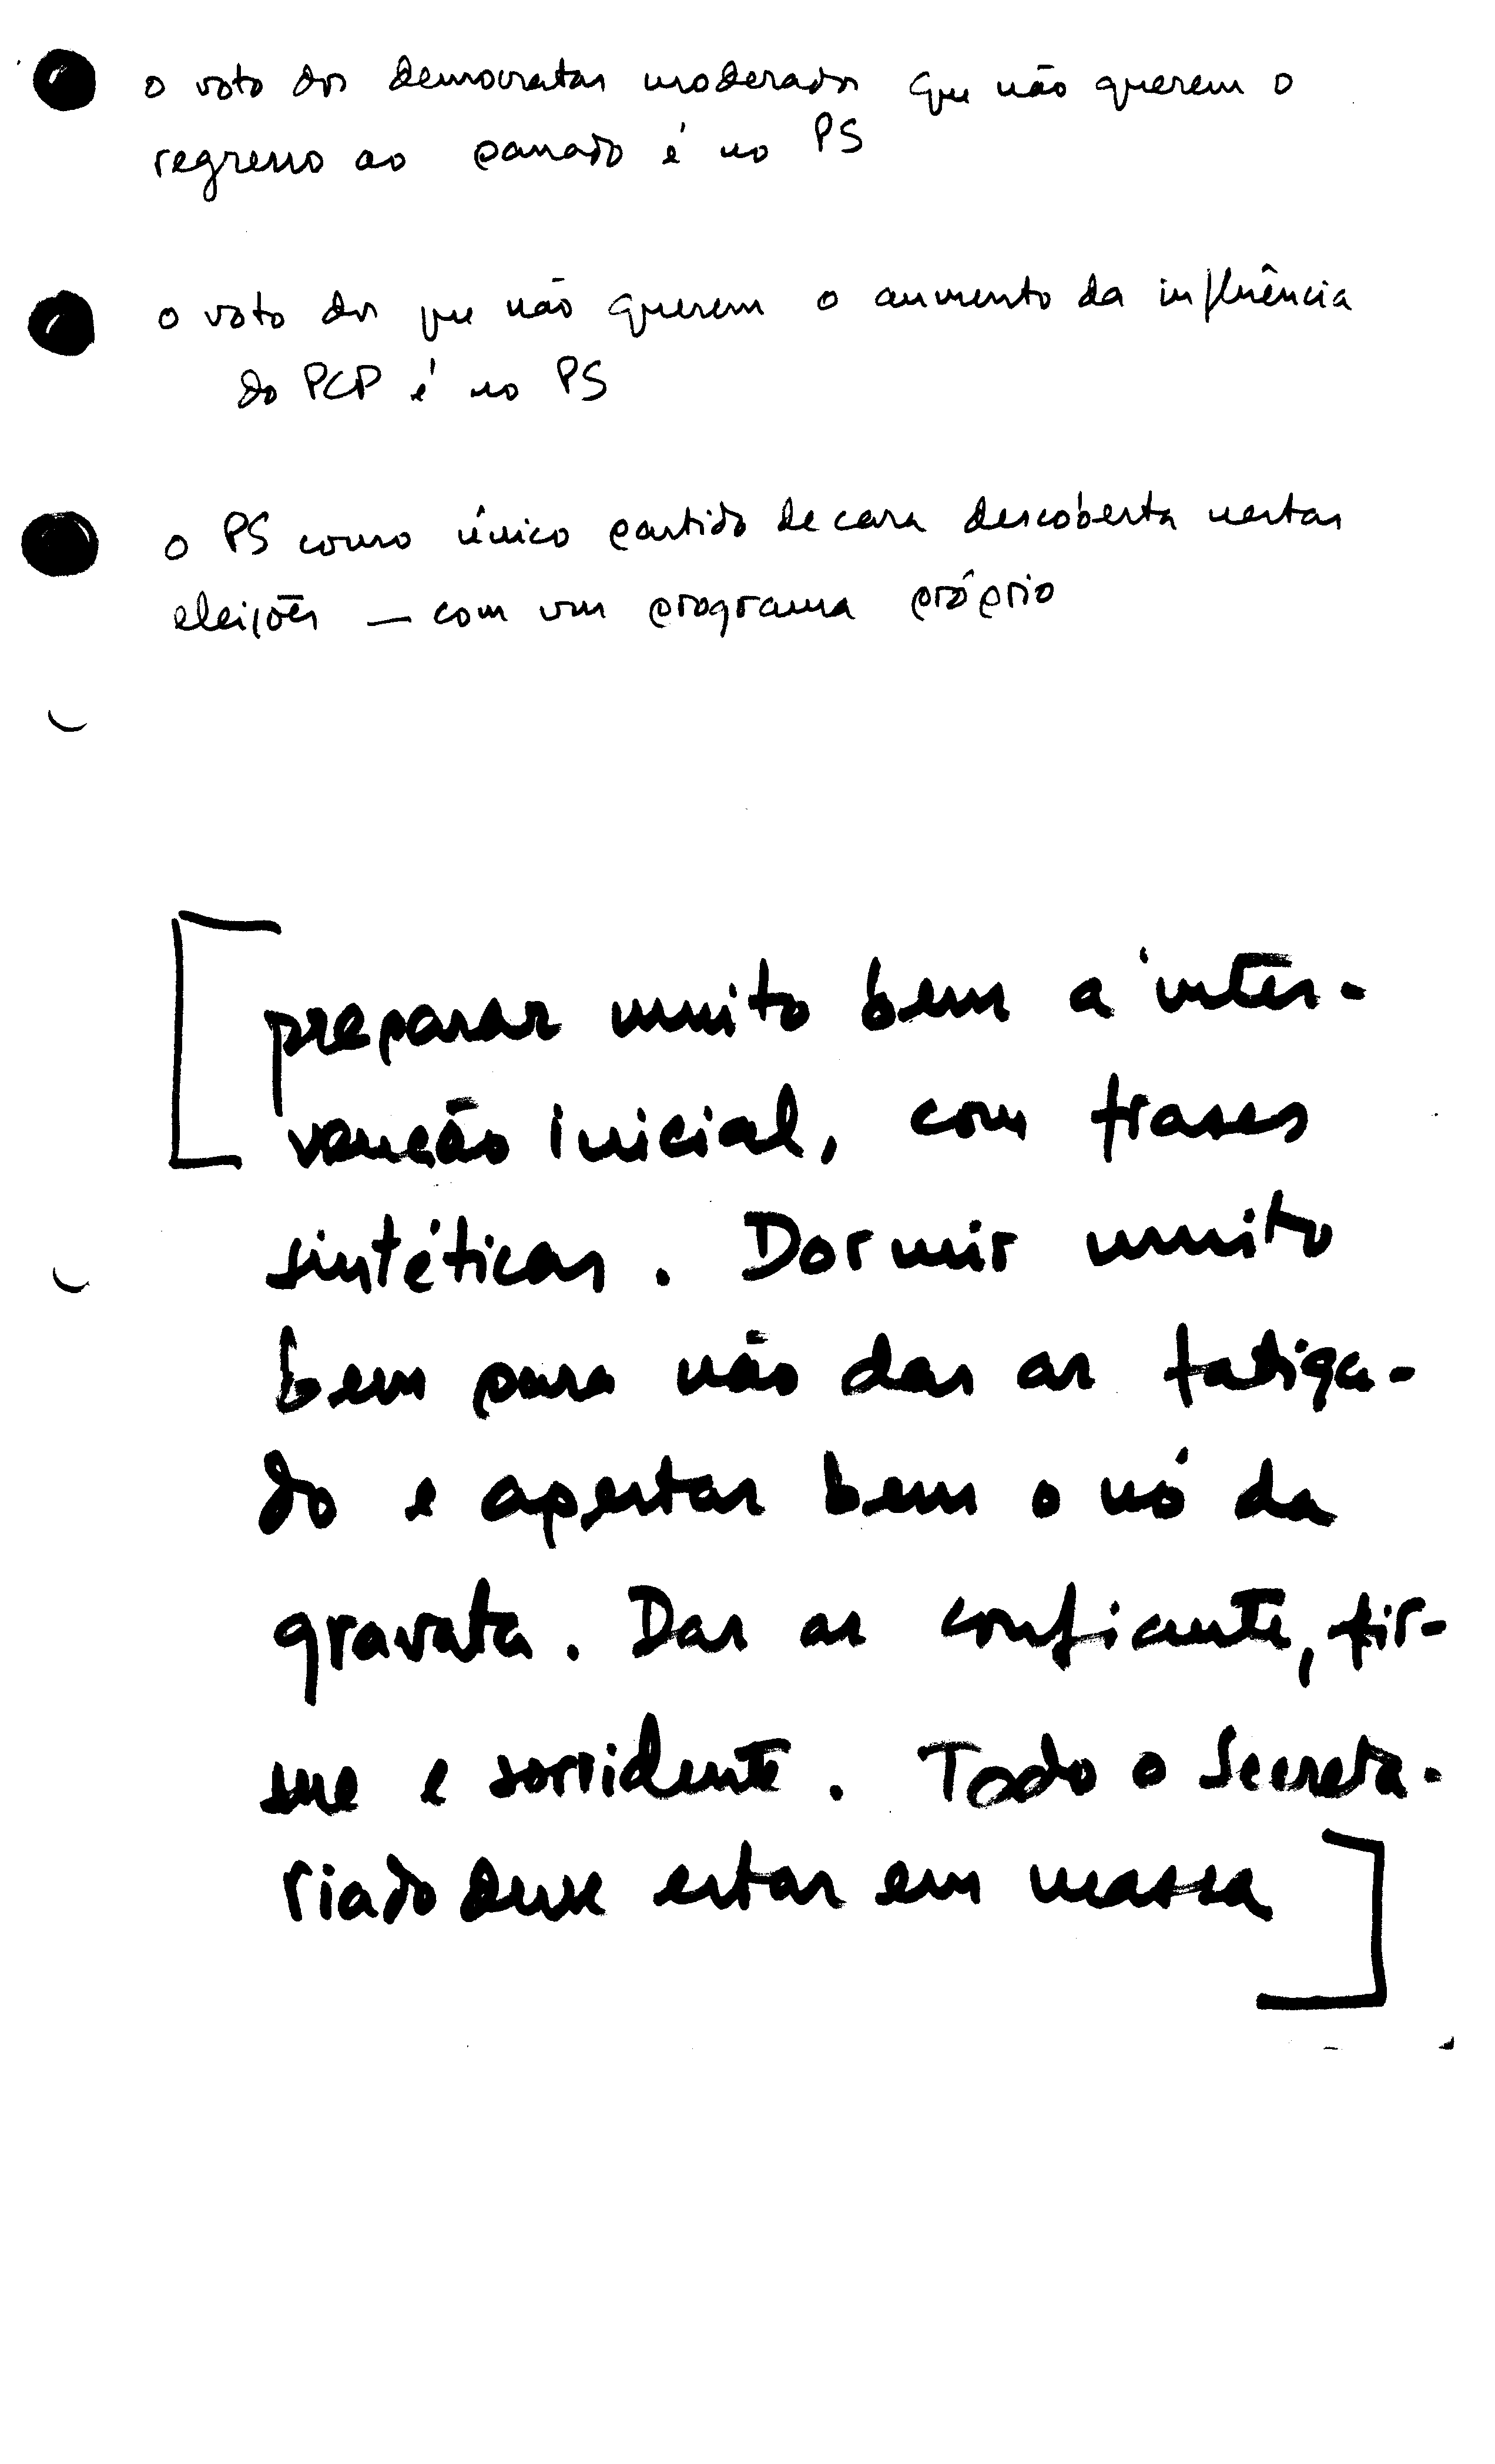 o voto dos democratas moderados que não querem o
regresso ao passado é no PS
o voto dos que não querem o aumento da influência
do PCP é no PS
o PS como único partido de cara descoberta nestas
eleições — com um programa próprio
[preparar muito bem a inter-
venção inicial, com frases
sintéticas. Dormir muito
bem para não dar ar fatiga-
do e apertar bem o nó da
gravata. Dar ar confiante, fir-
me e sorridente. Todo o Secreta-
riado deve estar em massa]